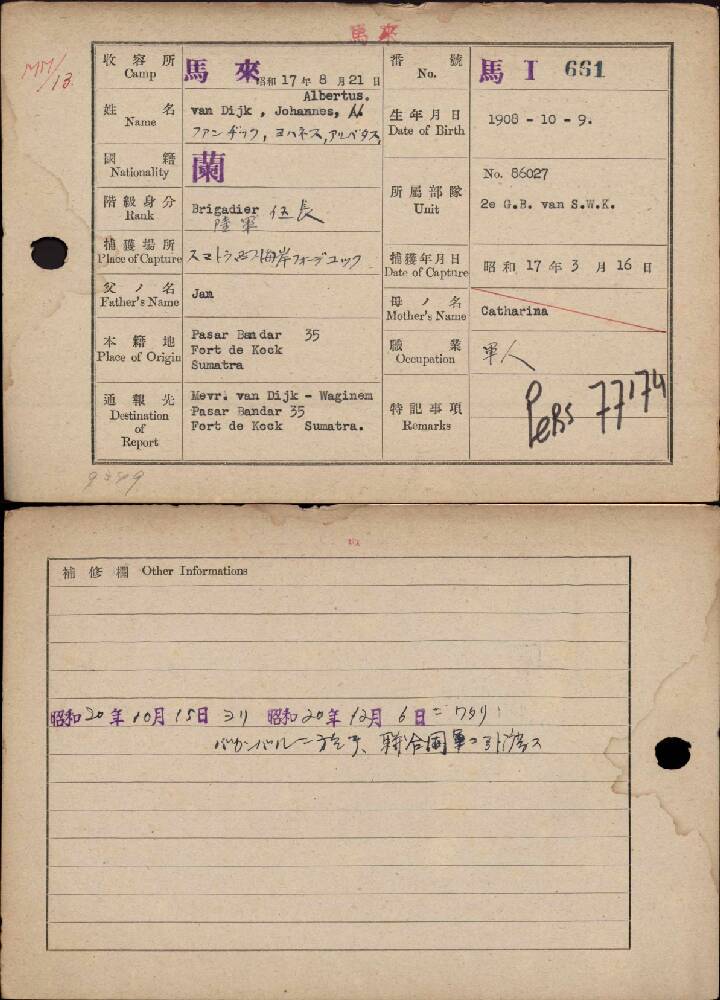 馬來
MM/13
收容所 Camp 馬來 昭和17年8月21日
番號 No. 馬 I 661
姓名 Name van Dijk , Johannes, Albertus.
ファン ヂック, ヨハネス, アルバタス
生年月日 Date of Birth 1908 - 10 - 9.
國籍 Nationality 蘭
階級身分 Rank Brigadier 陸軍 伍長
所屬部隊 Unit No. 86027
2e G.B. van S.W.K.
捕獲場所 Place of Capture スマトラ西海岸フォーデコック
捕獲年月日 Date of Capture 昭和17年3月16日
父ノ名 Father's Name Jan
母ノ名 Mother's Name Catharina
本籍地 Place of Origin Pasar Bandar 35
Fort de Kock
Sumatra
職業 Occupation 軍人
通報先 Destination of Report Mevr. van Dijk - Waginem
Pasar Bandar 35
Fort de Kock Sumatra.
特記事項 Remarks Pers 77174
補修欄 Other Informations
昭和20年10月15日ヨリ 昭和20年12月6日ニワタリ
パカンバルニ於テ、聯合國軍ニ引渡ス